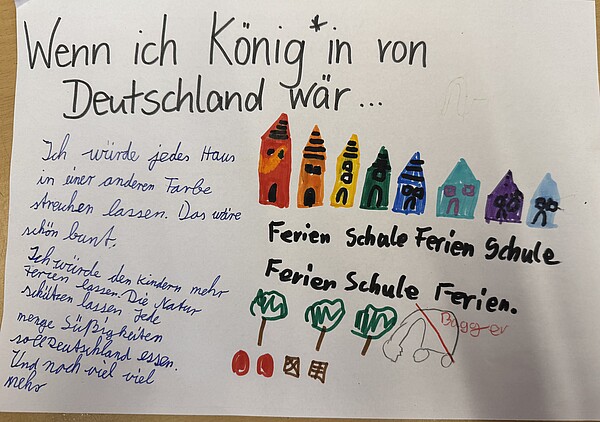 Wenn ich König*in von
Deutschland wär...
Ich würde jedes Haus
in einer anderen Farbe
streichen lassen. Das wäre
schön bunt.
Ich würde den Kindern mehr
Ferien lassen. Die Natur
schützen lassen Jede
menge Süßigkeiten
soll Deutschland essen.
Und noch viel viel
mehr
Ferien Schule Ferien Schule
Ferien Schule Ferien.
Bagger